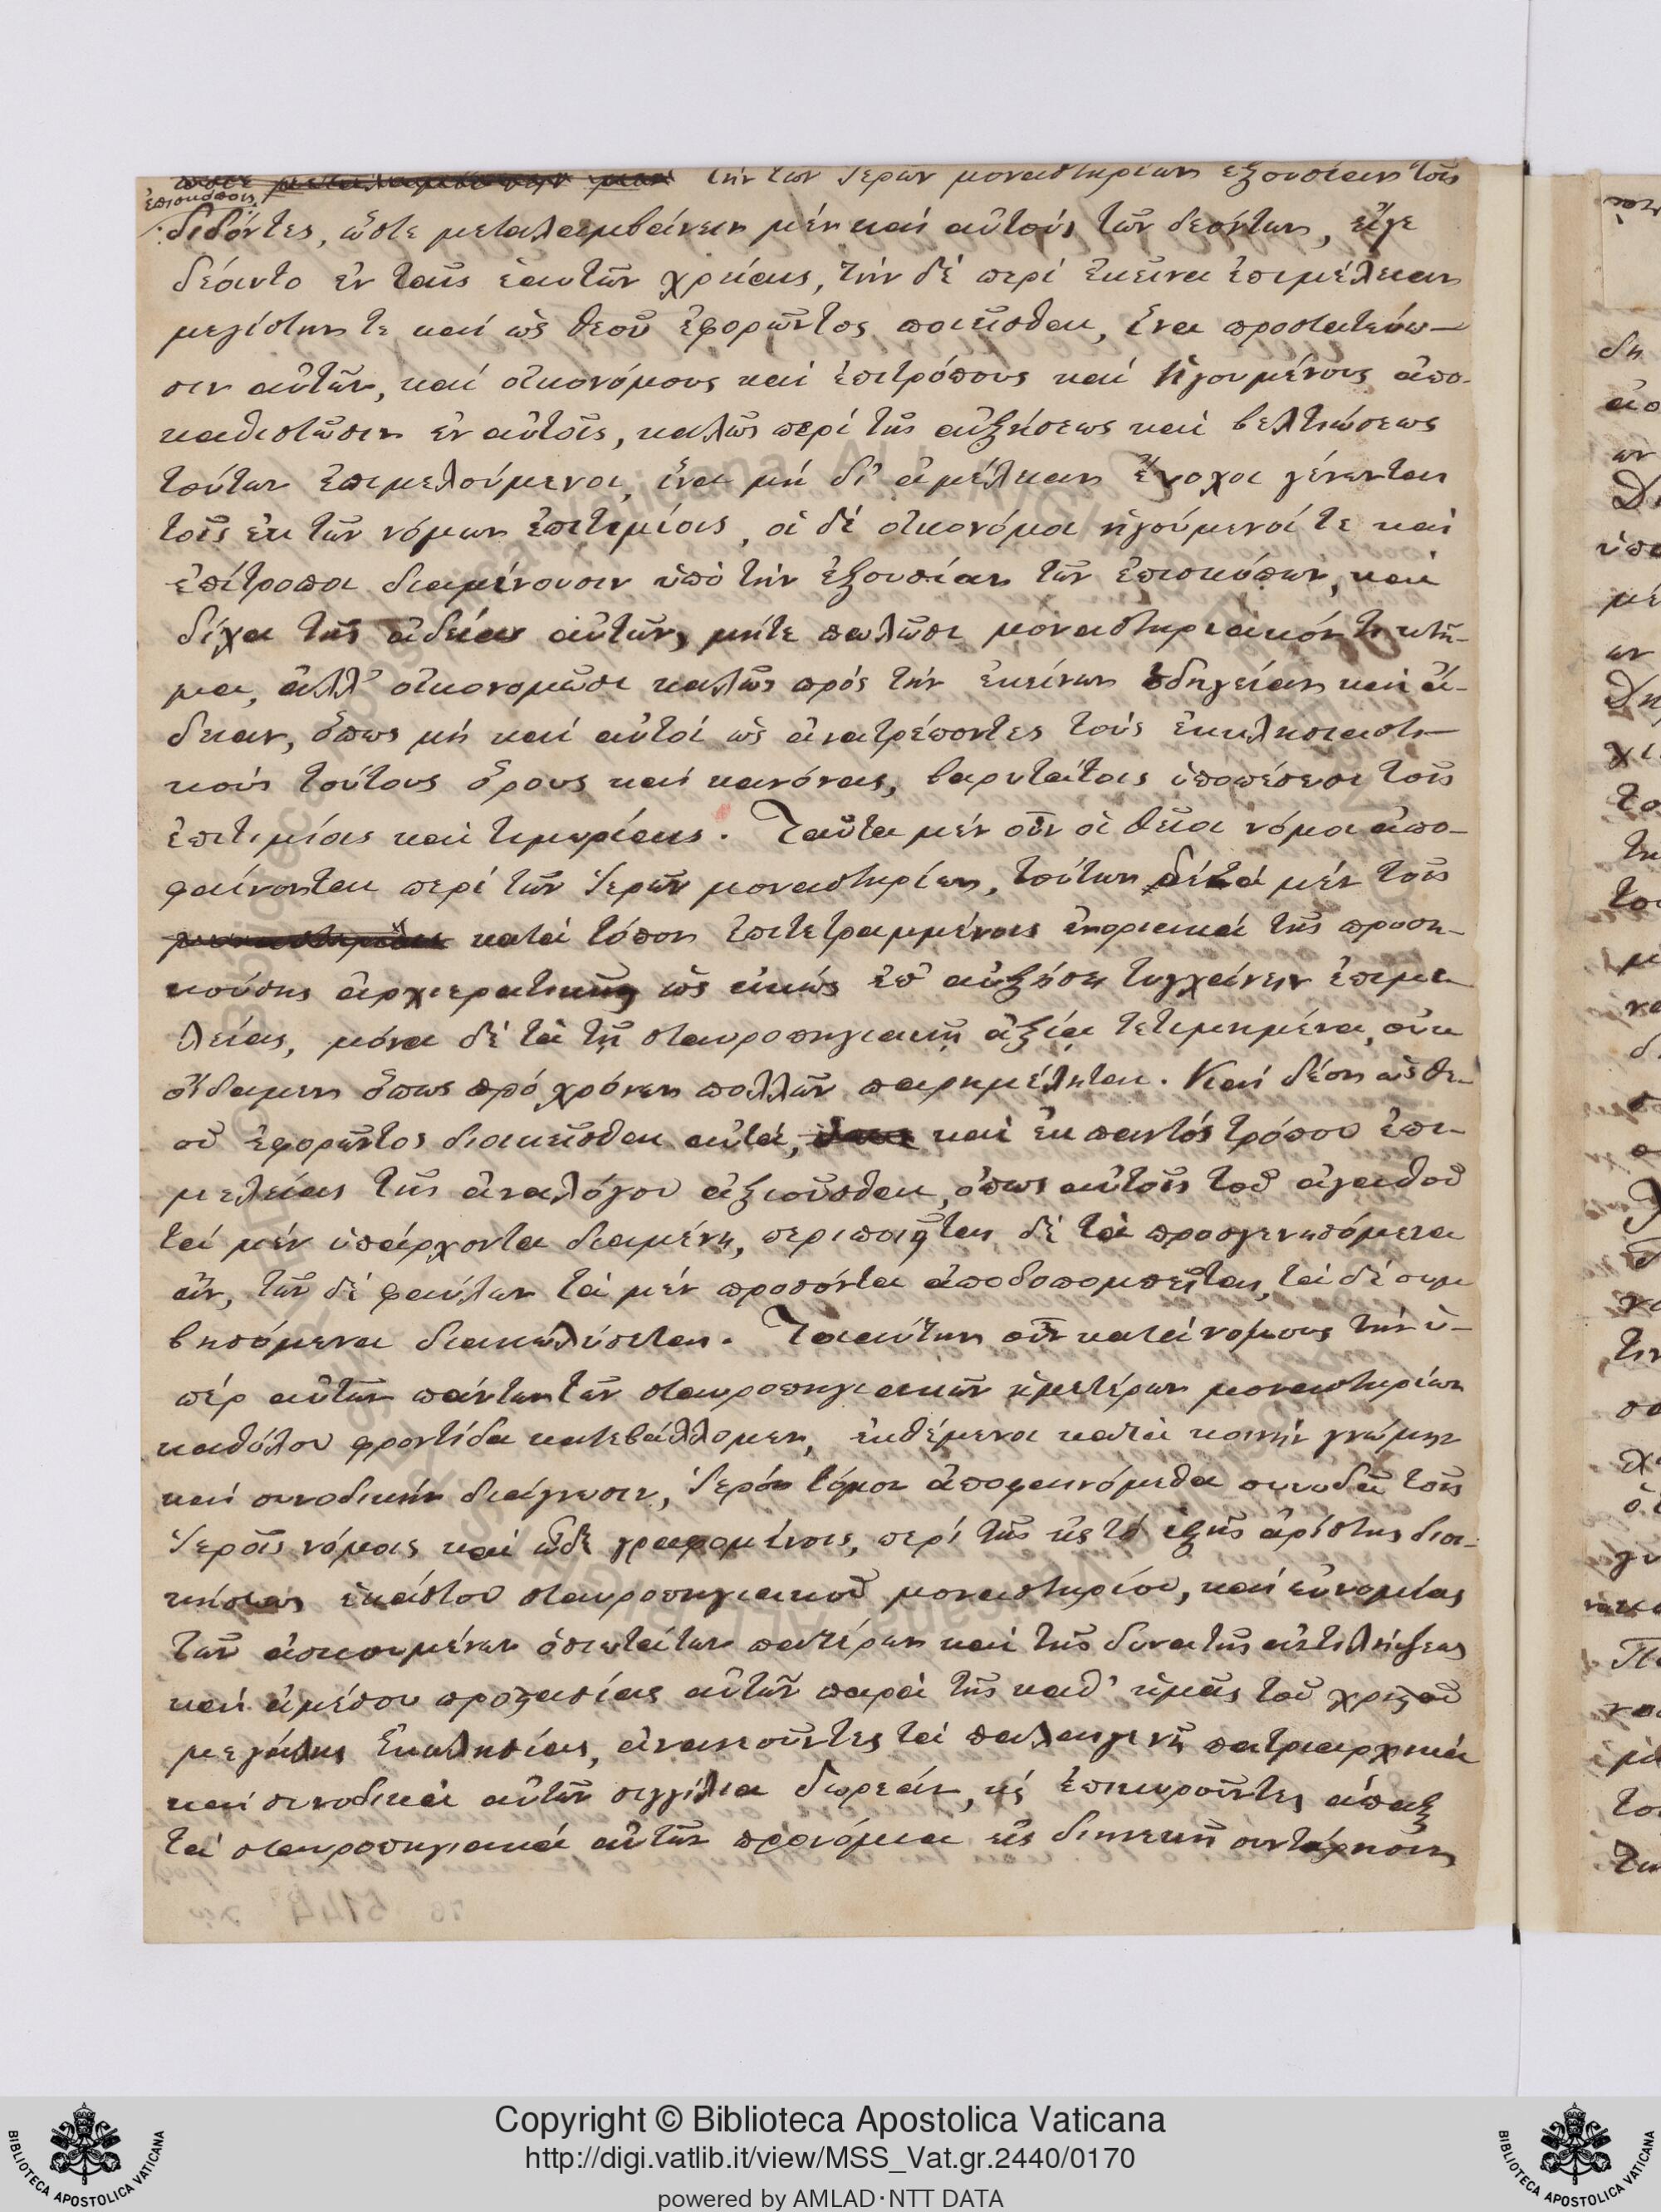 τὴν τῶν ἱερῶν μοναστηρίων ἐξουσίαν τοῖς
ἐπισκόποις
διδόντες, ὥστε μεταλαμβάνειν μέν καί αὐτούς τῶν δεόντων, εἴγε
δέοιντο ἐν ταῖς ἑαυτῶν χρείαις, τήν δέ περί ἐκεῖνα ἐπιμέλειαν
μεγίστην τε καί ὡς θεοῦ ἐφορῶντος ποιεῖσθαι, ἵνα προστατεύω-
σιν αὐτῶν, καί οἰκονόμους καί ἐπιτρόπους καί ἡγουμένους ἀπο-
καθιστῶσιν ἐν αὐτοῖς, καλῶς περί τῆς αὐξήσεως καί βελτιώσεως
τούτων ἐπιμελούμενοι, ἵνα μή δι' ἀμέλειαν ἔνοχοι γένωνται
τοῖς ἐκ τῶν νόμων ἐπιτιμίοις, οἱ δέ οἰκονόμοι ἡγούμενοί τε καί
ἐπίτροποι διαμένουσιν ὑπό τήν ἐξουσίαν τῶν ἐπισκόπων, καί
δίχα τῆς ἀδείας αὐτῶν, μήτε πωλῶσι μοναστηριακόν τι κτῆ-
μα, ἀλλ' οἰκονομῶσι καλῶς πρός τήν ἐκείνων ὁδηγείαν καί ἄ-
δειαν, ὅπως μή καί αὐτοί ὡς ἀνατρέποντες τούς ἐκκλησιαστι-
κούς τούτους ὅρους καί κανόνας, βαρυτάτοις ὑποπέσωσι τοῖς
ἐπιτιμίοις καί τιμωρίαις. Ταῦτα μέν οὖν οἱ θεῖοι νόμοι ἀπο-
φαίνονται περί τῶν ἱερῶν μοναστηρίων, τούτων δέ τά μέν τοῖς
κατά τόπον ἐπιτετραμμένοις ἐνοριακά τῆς προση-
κούσης ἀρχιερατικῆς ὡς εἰκός ἐπ' αὐξήσει τυγχάνειν ἐπιμε-
λείας, μόνα δέ τά τῇ σταυροπηγιακῇ ἀξίᾳ τετιμημένα, οὐκ
οἴδαμεν ὅπως πρό χρόνων πολλῶν παρημέληται. Καί δέον ὡς θε-
οῦ ἐφορῶντος διοικεῖσθαι αὐτά, καί ἐκ παντός τρόπου ἐπι-
μελείας τῆς ἀναλόγου ἀξιοῦσθαι, ὅπως αὐτοῖς τοῦ ἀγαθοῦ
τά μέν ὑπάρχοντα διαμένῃ, περιποιῆται δέ τά προσγενησόμενα
ἄν, τῶν δέ φαύλων τά μέν προσόντα ἀποδοπομπεῖται, τά δέ συμ
βησόμενα διακωλύσεται. Τοιαύτην οὖν κατά νόμους τήν ὑ-
πέρ αὐτῶν πάντων τῶν σταυροπηγιακῶν ἡμετέρων μοναστηρίων
καθόλου φροντίδα κατεβάλλομεν, ἐκθέμενοι κατά κοινήν γνώμην
καί συνοδικήν διάγνωσιν, ἱερόν τόμον ἀποφαινόμεθα συνῳδά τοῖς
ἱεροῖς νόμοις καί ὧδε γραφομένοις, περί τῆς εἰς τό ἑξῆς ἀρίστης διοι-
κήσεως ἑκάστου σταυροπηγιακοῦ μοναστηρίου, καί εὐνομίας
τῶν ἀσκουμένων ὁσιωτάτων πατέρων καί τῆς δυνατῆς ἀντιλήψεως
καί ἀμέσου προστασίας αὐτῶν παρά τῆς καθ' ἡμᾶς τοῦ χριστοῦ
μεγάλης Ἐκκλησίας, ἀνανεοῦντες τά παλαιγενῆ πατριαρχικά
καί συνοδικά αὐτῶν σιγγίλια δωρεάν, καί ἐπικυροῦντες ἅπαξ
τά σταυροπηγιακά αὐτῶν προνόμια εἰς διηνεκῆ συντήρησιν
Copyright © Biblioteca Apostolica Vaticana
http://digi.vatlib.it/view/MSS_Vat.gr.2440/0170
powered by AMLAD·NTT DATA
BIBLIOTECA APOSTOLICA VATICANA
BIBLIOTECA APOSTOLICA VATICANA